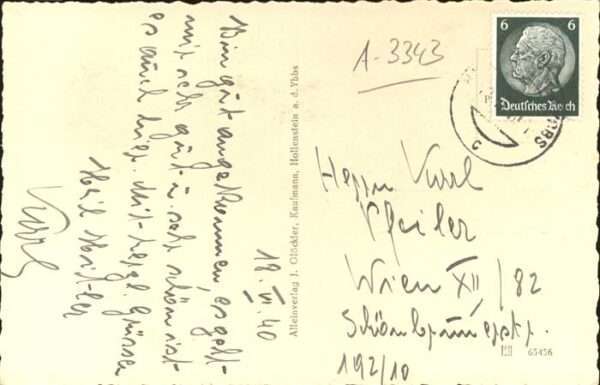 Bin gut angekommen, es geht
mir sehr gut u. sehr schön ist
es auch hier. Mit herzl. Grüssen
Heil Hitler
Karl
18. VI. 40
Alleinverlag J. Glöckler, Kaufmann, Hollenstein a. d. Ybbs
A-3343
6 6
Deutsches Reich
YBBS
c
Herrn Karl
Pfeiler
Wien XII / 82
Schönbrunerstr.
192/10
65456